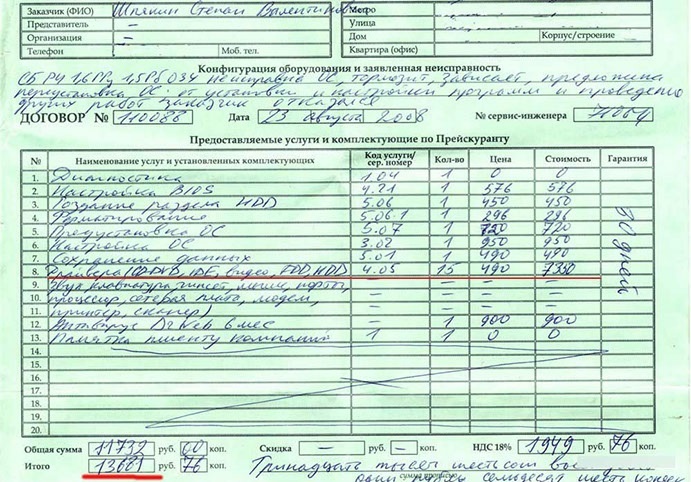 Заказчик (ФИО) Шпякин Степан Валентинович
Представитель –
Организация –
Телефон Моб. тел.
Метро
Улица
Дом Корпус/строение
Квартира (офис)
Конфигурация оборудования и заявленная неисправность
неисправна ОС, тормозит, зависает, предложена
переустановка ОС. от установки и настройки программ и проведение
других работ заказчик отказался
ДОГОВОР № 110088 Дата 23 августа 2008 № сервис-инженера
Предоставляемые услуги и комплектующие по Прейскуранту
№ Наименование услуг и установленных комплектующих Код услуги/сер. номер Кол-во Цена Стоимость Гарантия
1. Диагностика 1.04 1 0 0
2. Настройка BIOS 4.21 1 576 576
3. Создание раздела HDD 5.06 1 450 450
4. Форматирование 5.06.1 1 296 296
5. Предустановка ОС 5.07 1 720 720
6. Настройка ОС 3.02 1 950 950
7. Сохранение данных 5.01 1 490 490
8. Драйвера (CD-DVD, IDE, видео, FDD, HDD 4.05 15 490 7350
9. Звук, клавиатура, чипсет, мышь, порты, – – – –
10. процессор, сетевая плата, модем, – – – –
11. принтер, сканер) – – – –
12. Антивирус DrWeb 6 мес 1 900 900
13. Памятка клиенту компании 1 1 0 0
30 дней
14.
15.
16.
17.
18.
19.
20.
Общая сумма 11732 руб. 00 коп. Скидка – руб. – коп. НДС 18% 1949 руб. 76 коп.
Итого 13681 руб. 76 коп. Тринадцать тысяч шестьсот
один рубль семьдесят шесть копеек